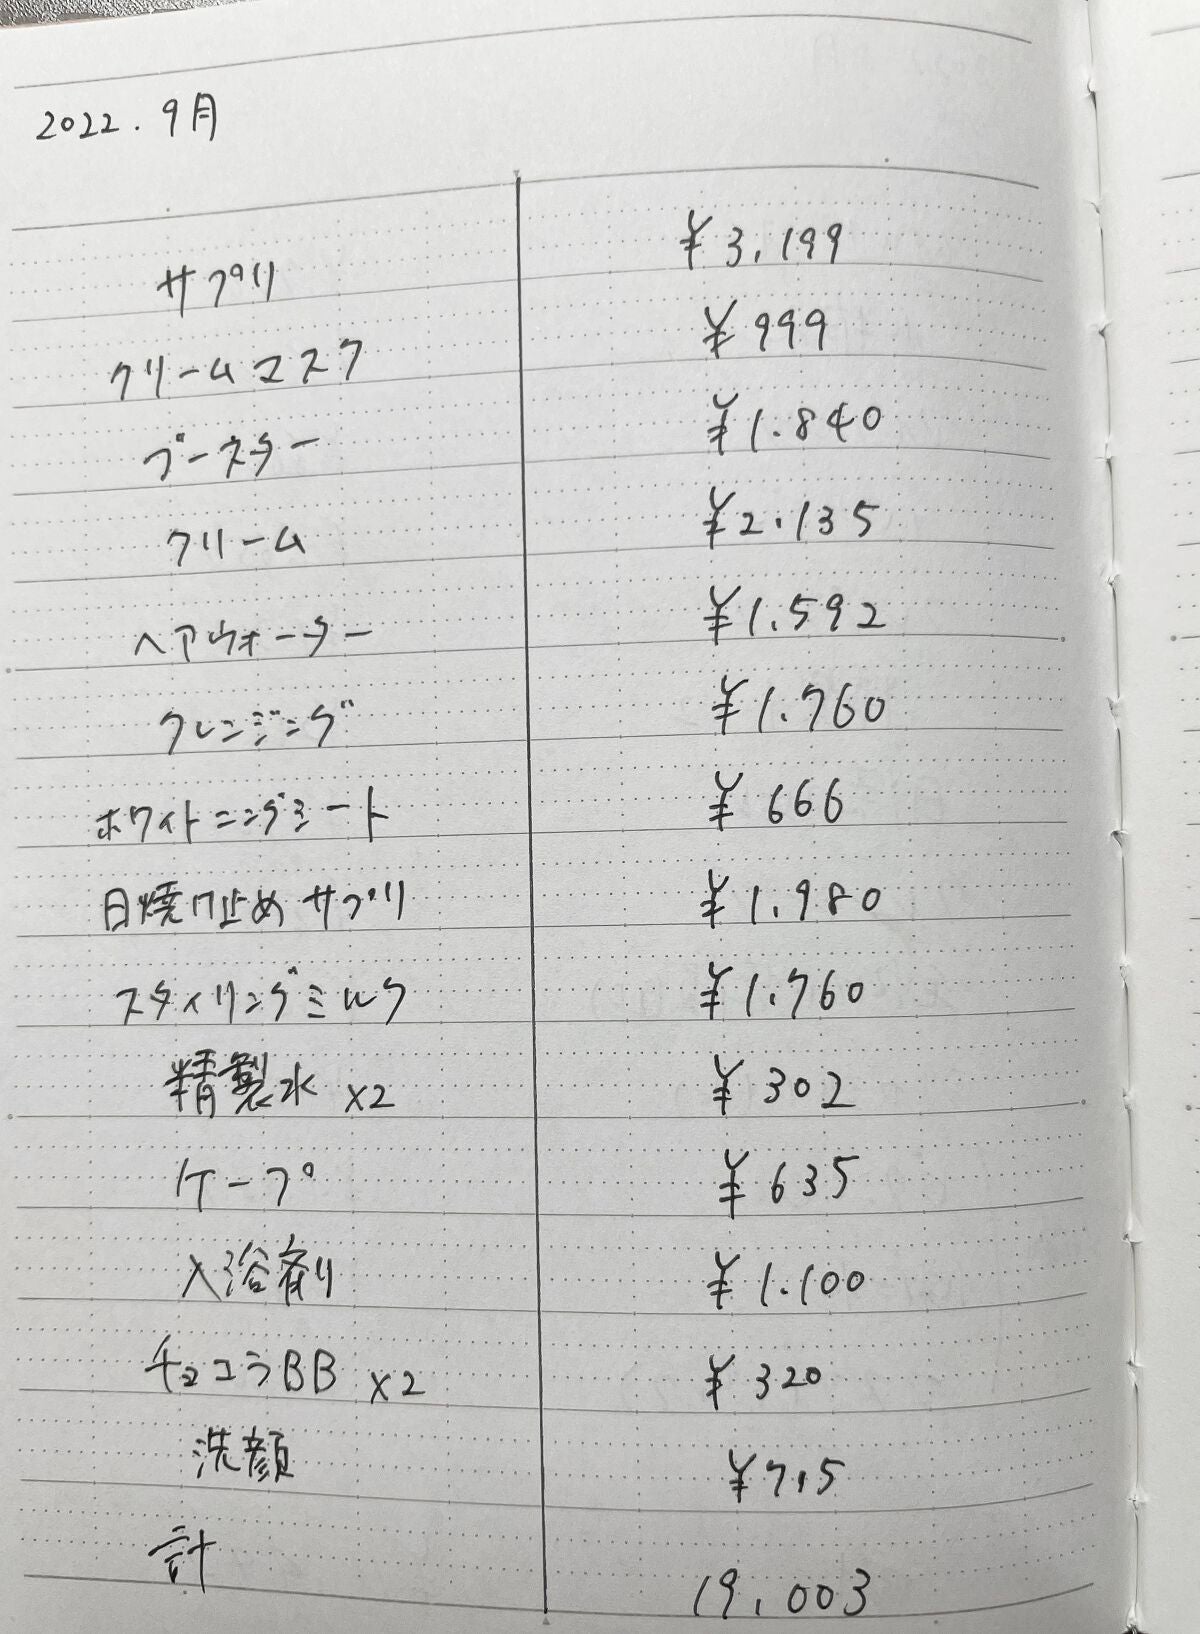 2022.9月
サプリ ¥3,199
クリームマスク ¥999
ブースター ¥1.840
クリーム ¥2.135
ヘアウォーター ¥1.592
クレンジング ¥1.760
ホワイトニングシート ¥666
日焼け止めサプリ ¥1.980
スタイリングミルク ¥1.760
精製水 x2 ¥302
ケープ ¥635
入浴剤 ¥1.100
チョコラBB x2 ¥320
洗顔 ¥715
計 19,003